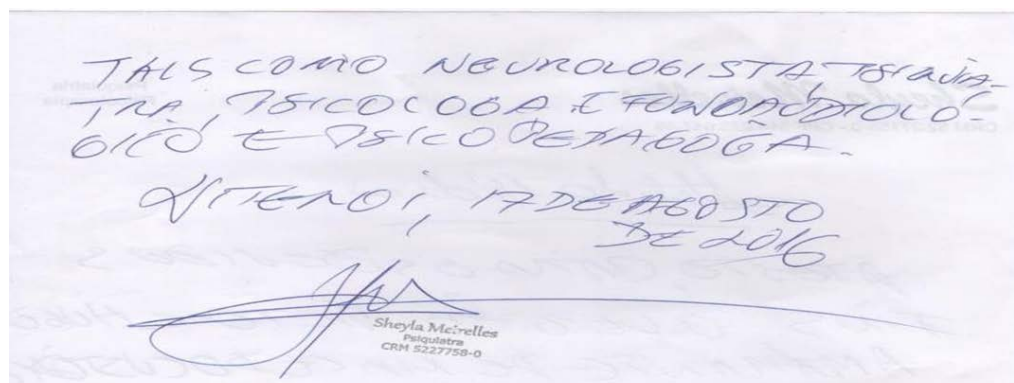 TAIS COMO NEUROLOGISTA, PSIQUIA-
TRA, PSICOLOGA E FONOAUDIOLO-
GICO E PSICOPEDAGOGA.
NITEROI, 17 DE AGOSTO
DE 2016
Sheyla Meirelles
Psiquiatra
CRM 5227758-0